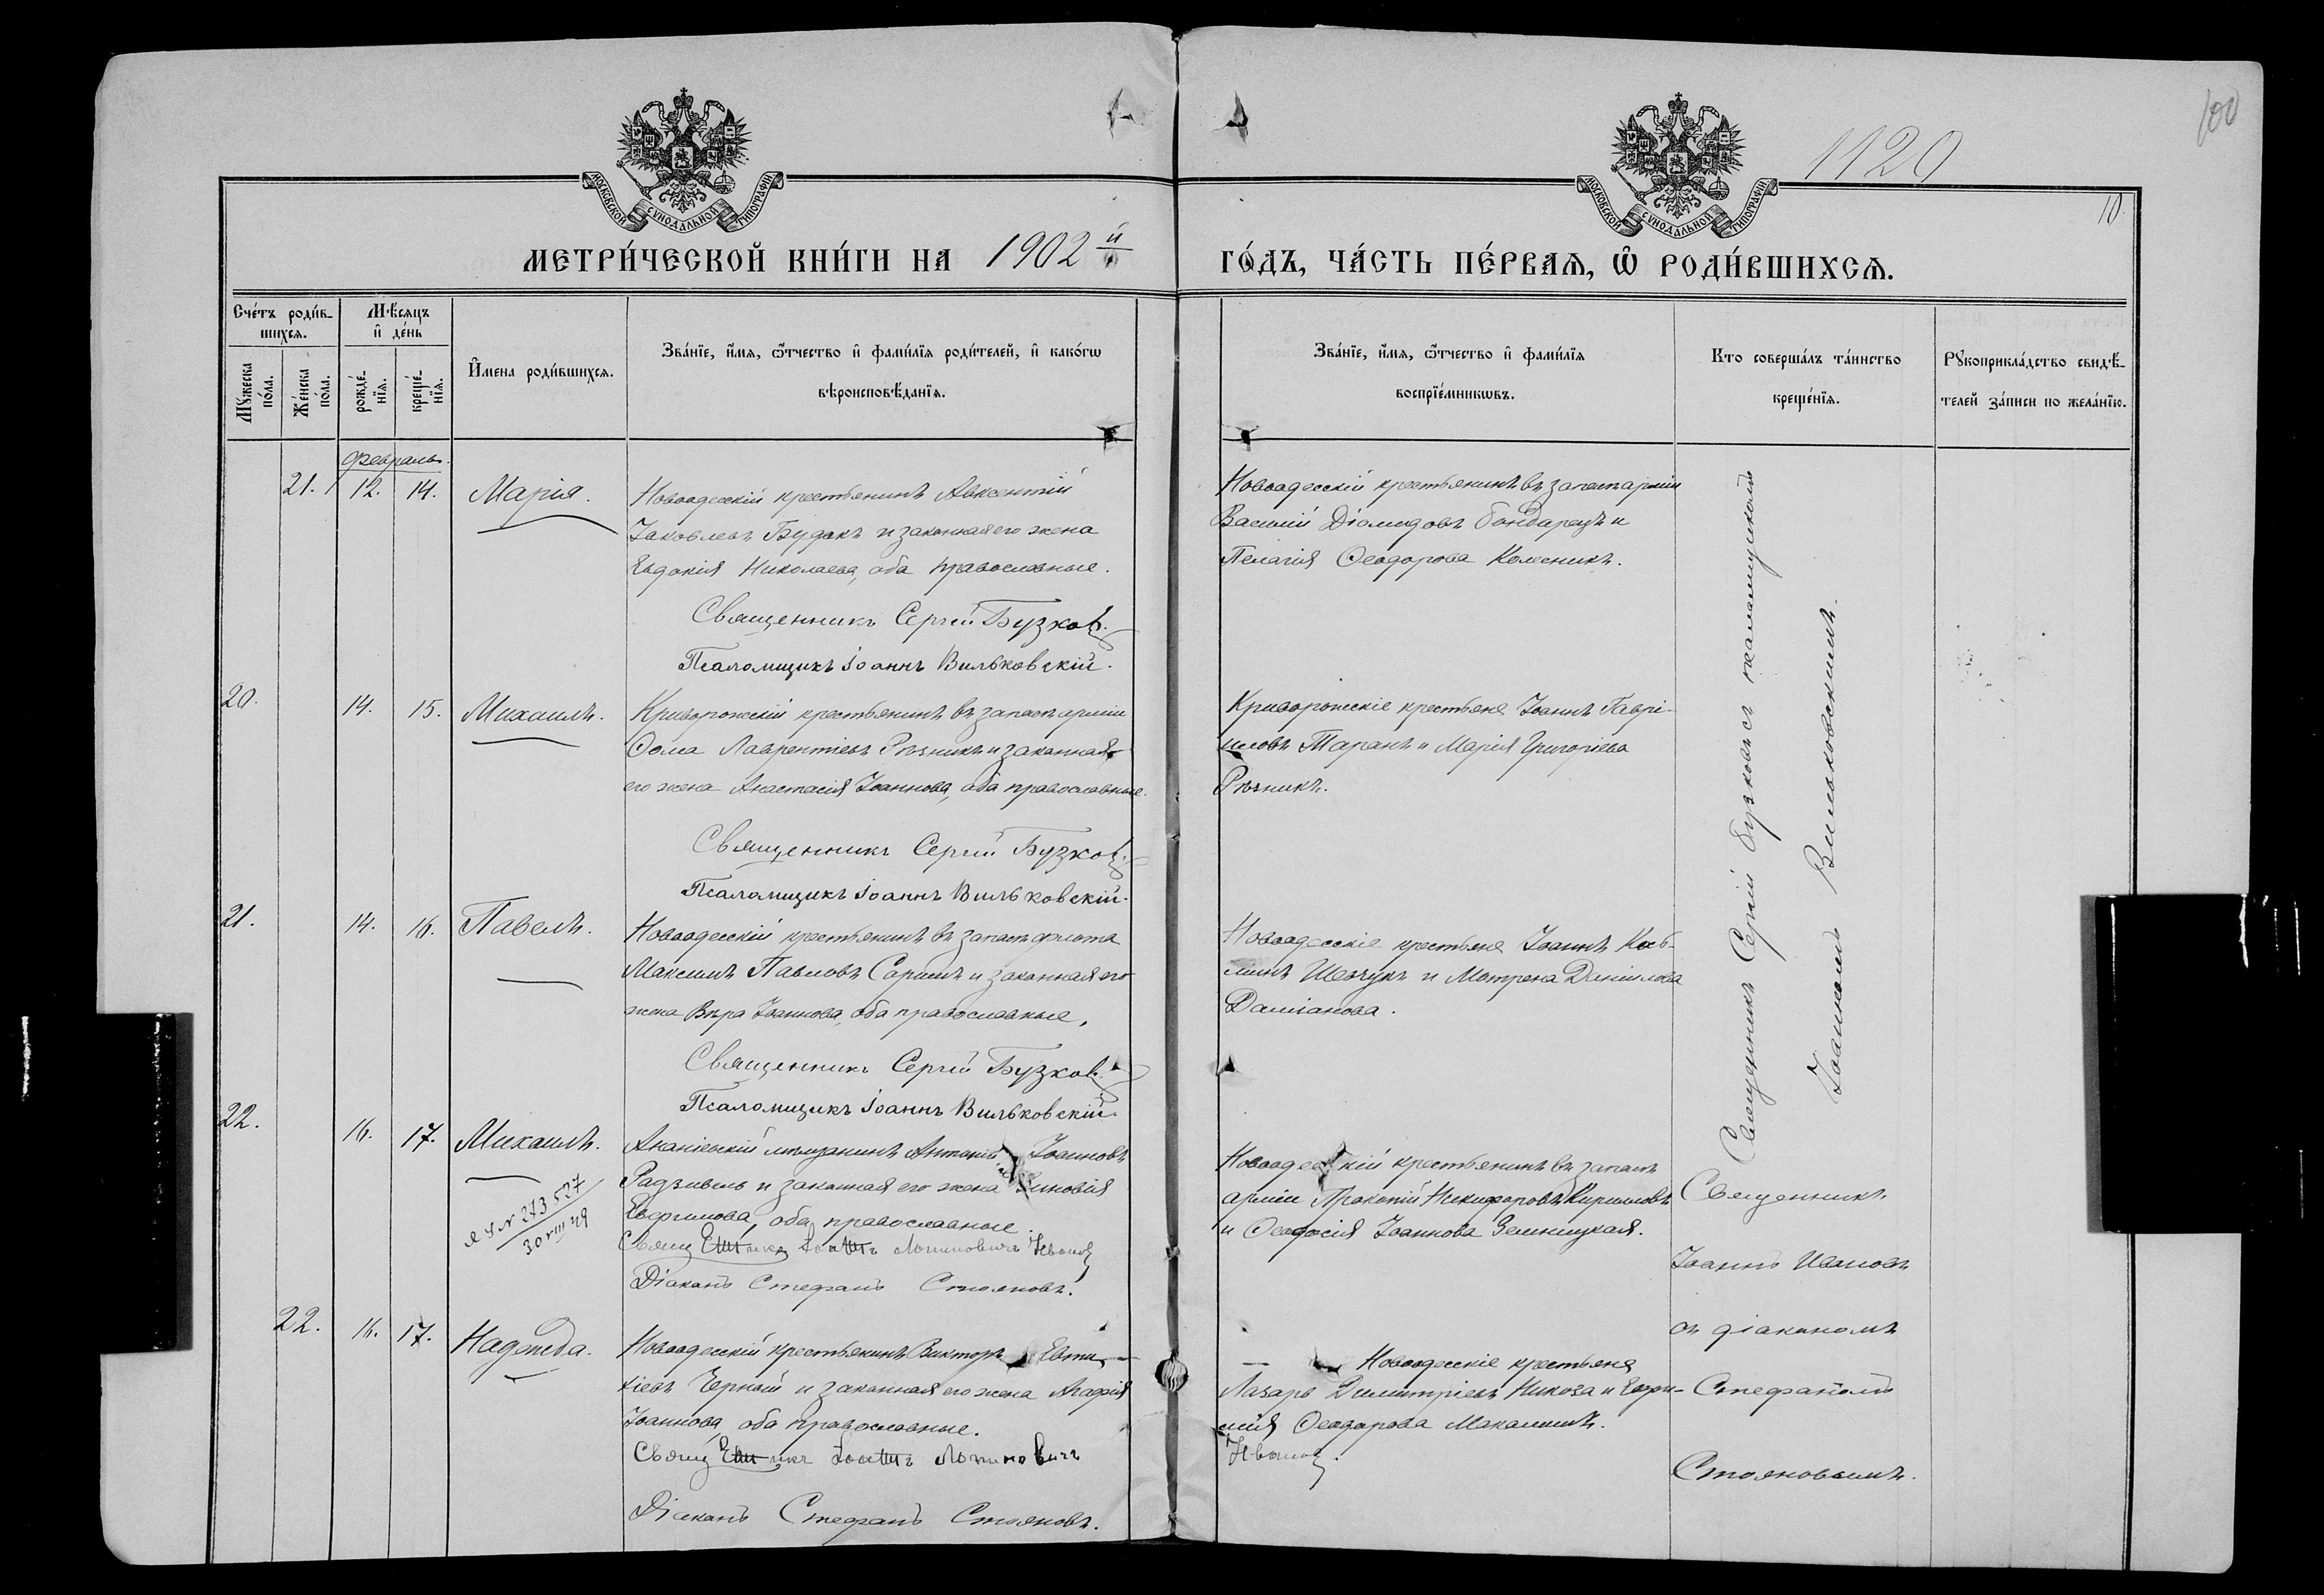 100
1120
10.
МОСКОВСКОЙ СѴНОДАЛЬНОЙ ТИПОГРАФІИ
МОСКОВСКОЙ СѴНОДАЛЬНОЙ ТИПОГРАФІИ
МЕТРИ́ЧЕСКОЙ КНИ́ГИ НА 1902 й
ГО́ДЪ, ЧА́СТЬ ПЕ́РВАѦ, Ѡ҆ РОДИ́ВШИХСѦ.
Сче́тъ роди́в-
шихсѧ.
Мꙋжеска по́ла.
Же́нска по́ла.
Мѣ́сѧцъ
и҆ де́нь
рожде́-
нїѧ.
креще́-
нїѧ.
И҆мена роди́вшихсѧ.
Зва́нїе, и҆́мѧ, ѻ҆́тчество и҆ фами́лїѧ роди́телей, и҆ како́гѡ
вѣроисповѣ́данїѧ.
Зва́нїе, и҆́мѧ, ѻ҆́тчество и҆ фами́лїѧ
воспрїе́мникѡвъ.
Кто соверша́лъ та́инство
креще́нїѧ.
Рꙋкоприкла́дство свидѣ́-
телей за́писи по жела́нїю.
Февраль.
21. 12. 14. Марія.
Новоодесскій крестьянинъ Авксентій
Іаковлевъ Будакъ и законная его жена
Евдокія Николаева, оба православные.
Священникъ Сергій Бузков.
Псаломщикъ Іоаннъ Вильковскій.
Новоодесскій крестьянинъ въ запасѣ арміи
Василій Діомидовъ Бондарецъ и
Пелагія Ѳеодорова Колесникъ.
20. 14. 15. Михаилъ.
Криворожскій крестьянинъ въ запасѣ арміи
Ѳома Лаврентіевъ Рѣзникъ и законная
его жена Анастасія Іоаннова, оба православные.
Священникъ Сергій Бузков.
Псаломщикъ Іоаннъ Вильковскій.
Криворожскіе крестьяне Іоаннъ Гаврі-
иловъ Таранъ и Марія Григоріева
Рѣзникъ.
21. 14. 16. Павелъ.
Новоодесскій крестьянинъ въ запасѣ флота
Максимъ Павловъ и законная его
жена Вѣра Іоаннова, оба православные.
Священникъ Сергій Бузков.
Псаломщикъ Іоаннъ Вильковскій.
Новоодесскіе крестьяне Іоаннъ Кось-
минъ Шевчукъ и Мотрона Даніилова
Даміанова.
Священникъ Сергій Бузковъ съ псаломщикомъ
Іоанномъ Вильковскимъ.
22. 16. 17. Михаилъ.
273527
30 VIII 49
Ананіевскій мѣщанинъ Антоній Іоанновъ
Радзивель и законная его жена Зиновія
Евфимова, оба православные.
Діаконъ Стефанъ Стояновъ.
Новоодесскій крестьянинъ въ запасѣ
арміи Прокопій Никифоровъ Кирилловъ
и Ѳеодосія Іоаннова Зелницкая.
Священникъ
Іоаннъ Ивановъ
съ діакономъ
Стефаномъ
Стояновымъ.
22. 16. 17. Надежда.
Новоодесскій крестьянинъ Викторъ Евти-
хіевъ Черный и законная его жена Агафія
Іоаннова, оба православные.
Діаконъ Стефанъ Стояновъ.
Новоодесскіе крестьяне
Лазарь Димитріевъ Никоза и Евфи-
мія Ѳеодорова